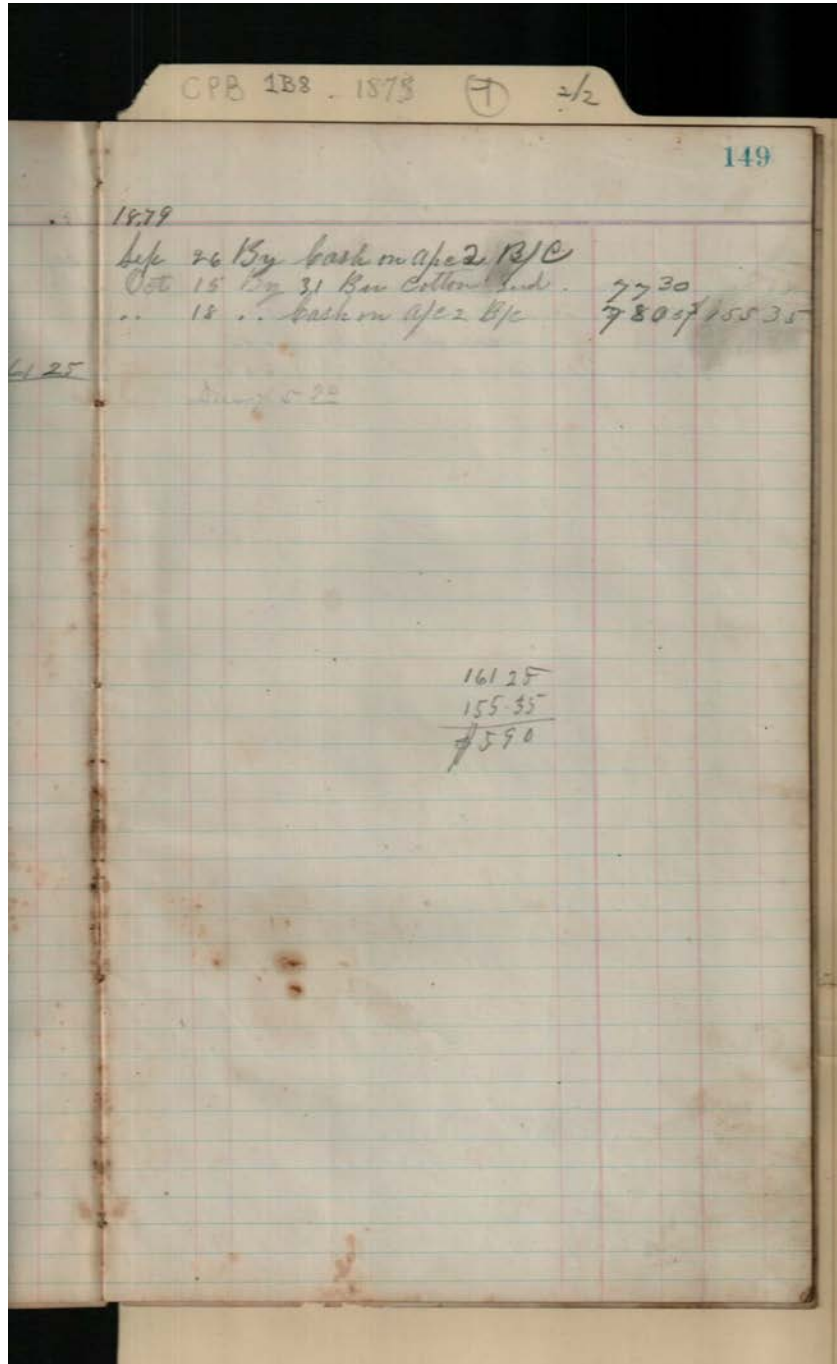 CPB 1B8 - 1878 1 2/2
149
1879
Sep 26 By Cash on a/c 2 B/C
Oct 15 By 31 Bu Cotton Seed. 7 7 30
" 18 " Cash on a/c 2 B/C 7 8 05 155 35
61 25
161 25
155 35
$5 90